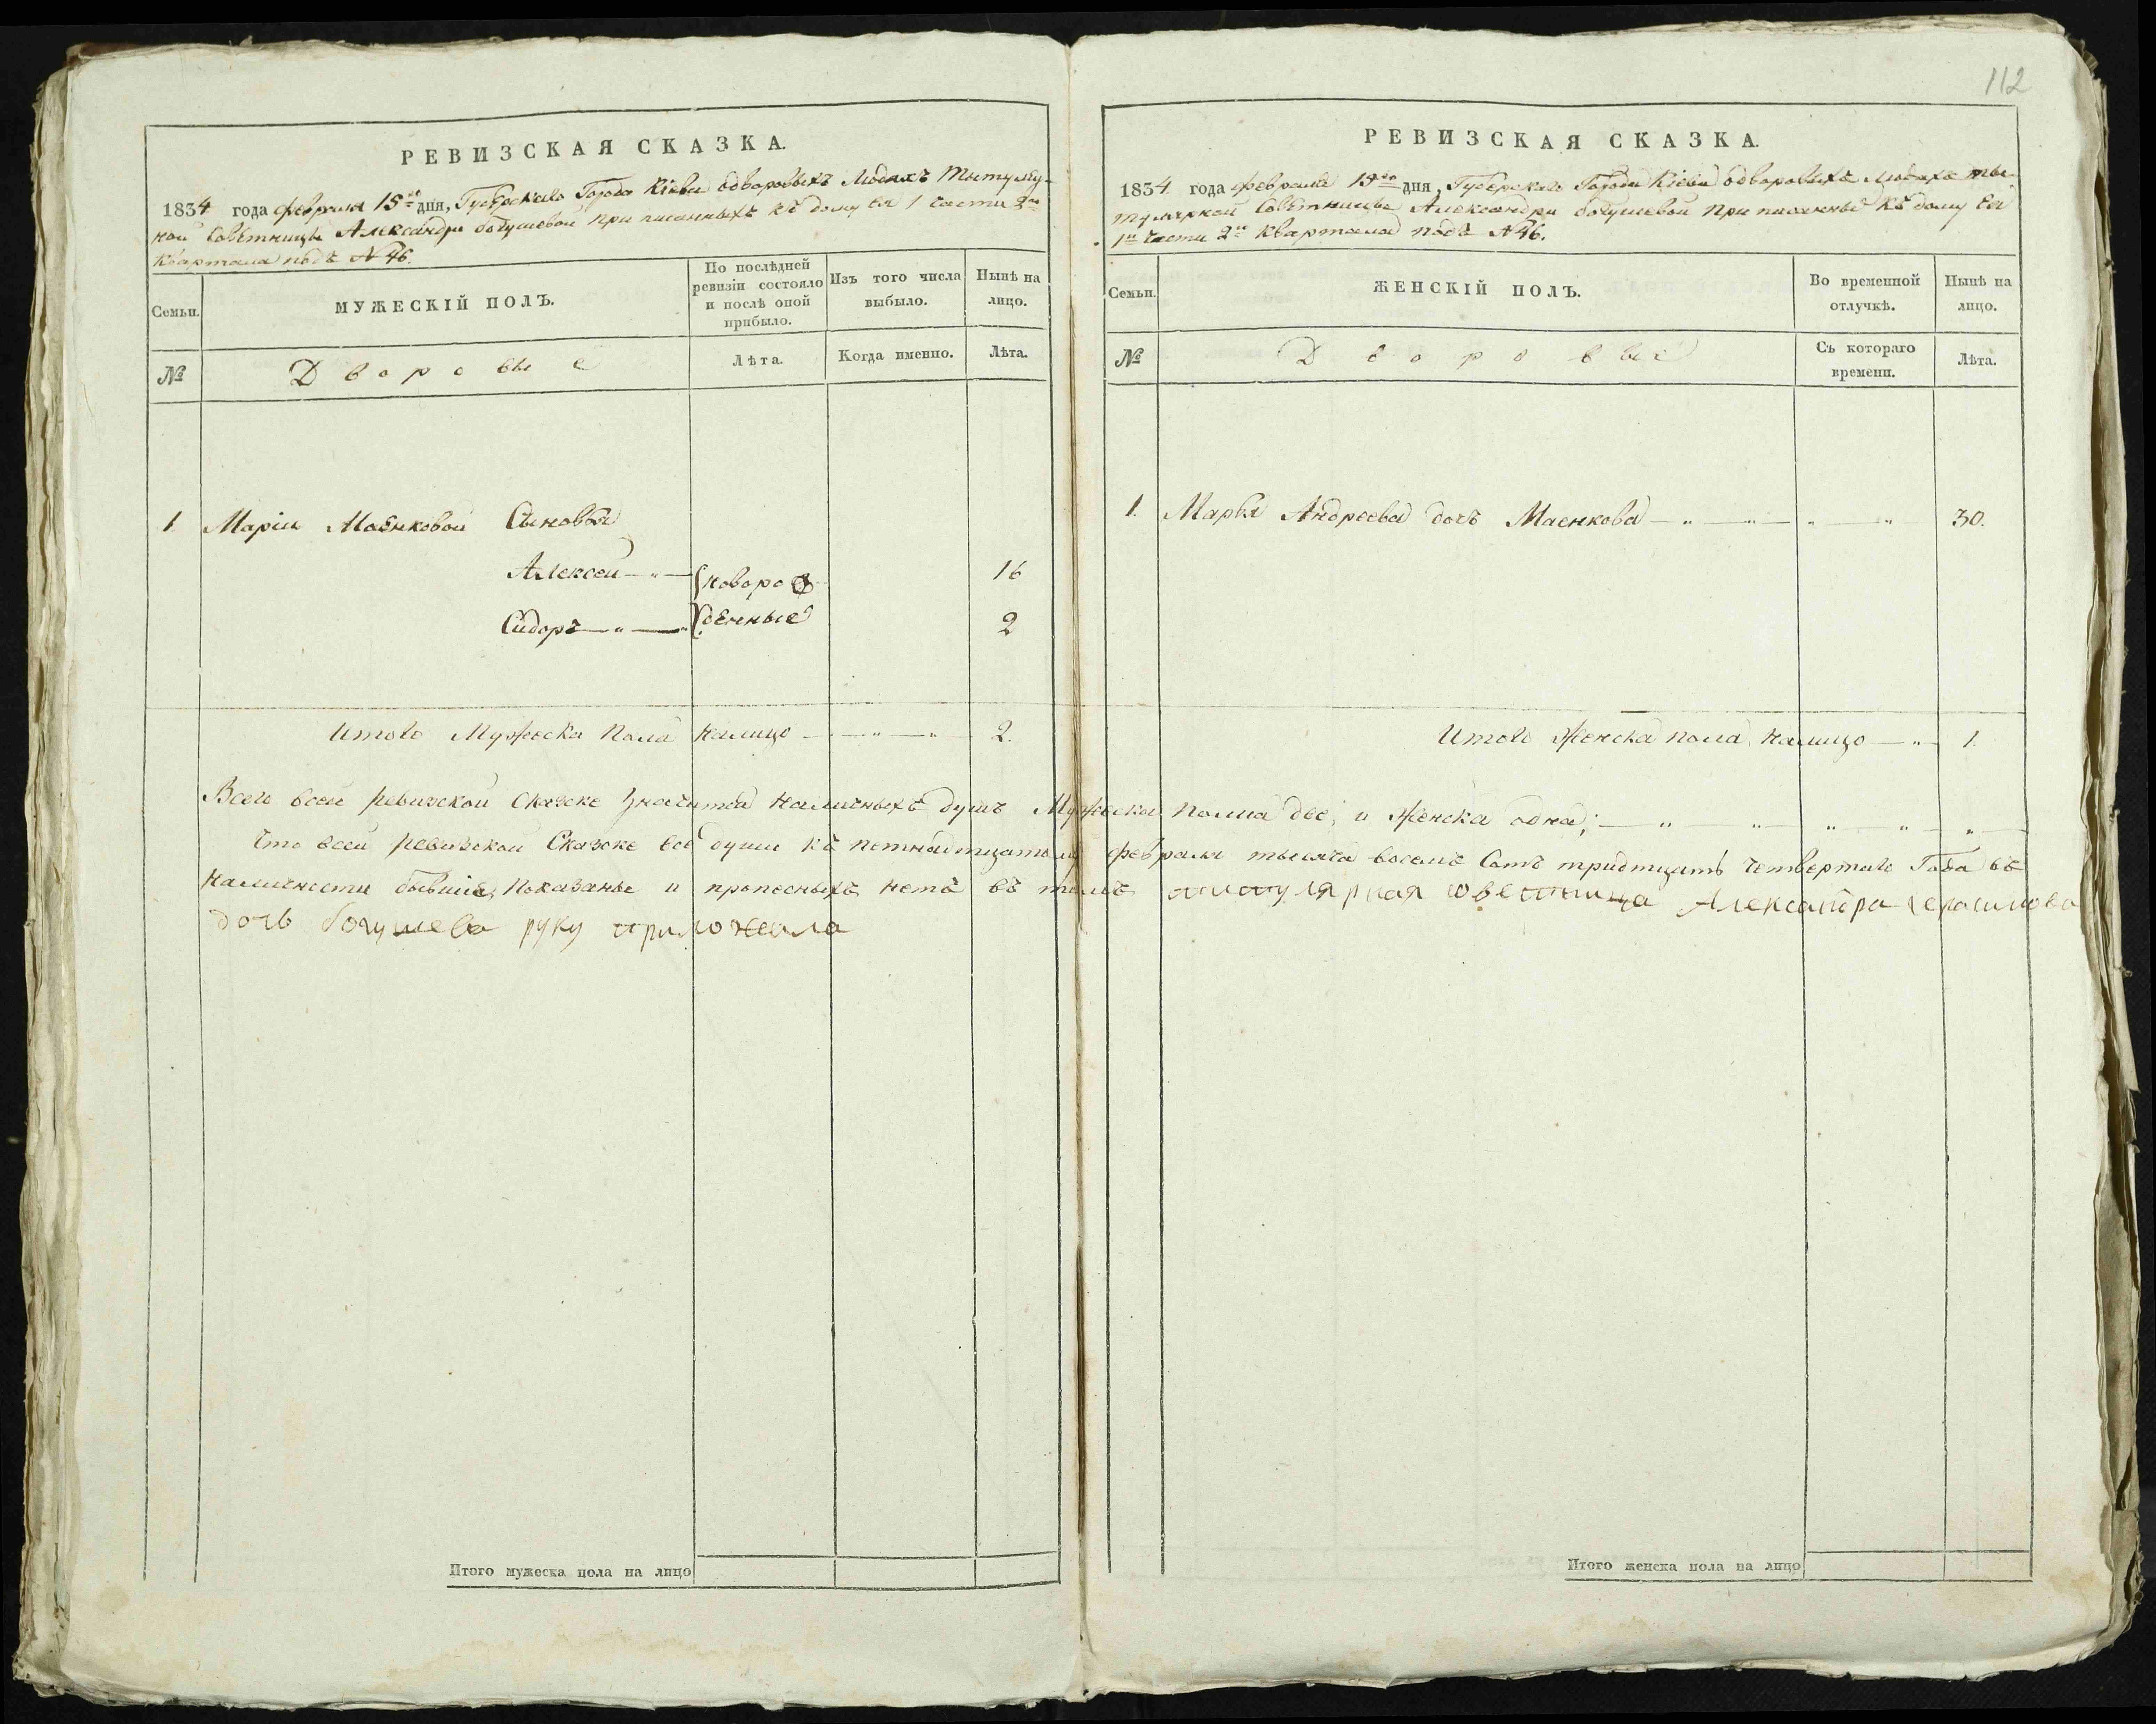 112
РЕВИЗСКАЯ СКАЗКА.
1834 года февраля 15го дня, Губернскаго Города Кіева одворовыхъ Людяхъ Тытуляр-
ной Совѣтницы Александры богушевой при писанныхъ къ дому Ея 1 части 2го
Квартала подъ № 46.
Семьи.
МУЖЕСКІЙ ПОЛЪ.
По послѣдней ревизіи состояло и послѣ оной прибыло.
Изъ того числа выбыло.
Нынѣ на лицо.
№
Дворовые
Лѣта.
Когда именно.
Лѣта.
1 Маріи Маенковой Сыновья
Алексей новоро 16
Сидоръ жденные 2
Итого Мужеска Пола налицо 2.
РЕВИЗСКАЯ СКАЗКА.
1834 года февраля 15го дня, Губернскаго Города Кіева одворовыхъ Людяхъ ты-
тулярной Совѣтницы Александры богушевой При писанные къ дому Ея
1й части 2го Квартала подъ № 46.
Семьи.
ЖЕНСКІЙ ПОЛЪ.
Во временной отлучкѣ.
Нынѣ на лицо.
№
Дворовые
Съ котораго времени.
Лѣта.
1. Марья Андреева дочь Маенкова 30.
Итого Женска пола налицо 1.
Всего всей ревизской сказке Значитца наличныхъ душъ Мужеска полла две, и Женска одна;
Что всей ревизской Сказке все души къ петнадтцатому февраля тысяча восемъ Сотъ тридтцать четвертаго Года въ
Наличности бывшіе, Показанье и прописныхъ нетъ въ томъ титулярная советница Александра Герасимова
дочь богушева руку приложила
Итого мужеска пола на лицо
Итого женска пола на лицо